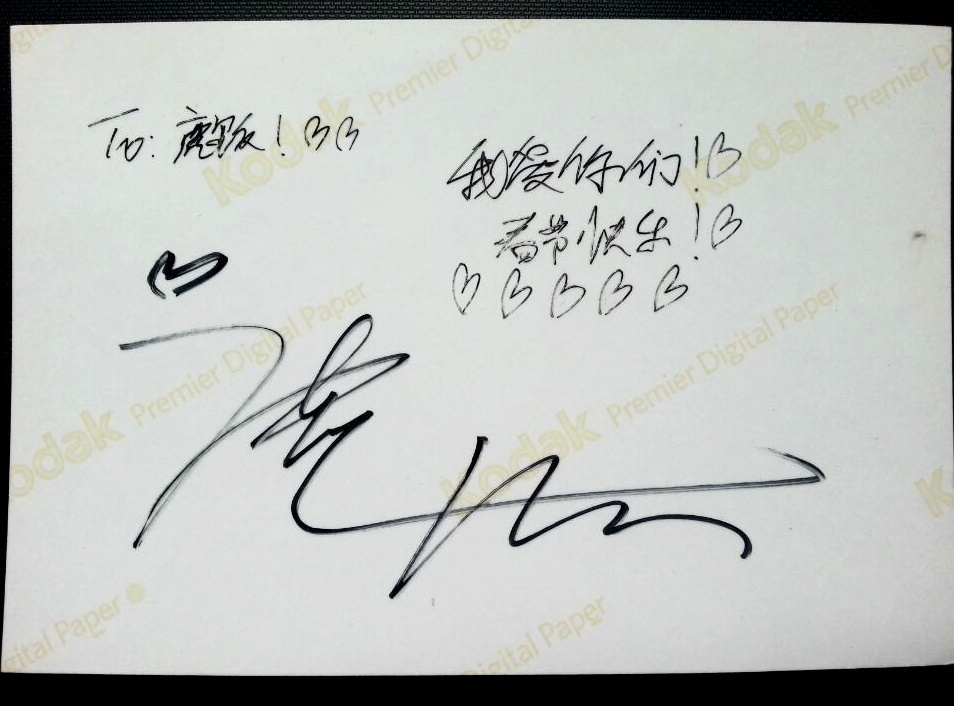 To: ! ♡♡
我爱你们!♡
春节快乐!♡
♡♡♡♡♡
Kodak Premier Digital Paper
Kodak Premier Digital
Kodak Premier Digital Paper
Kodak Premier Digital Paper
Digital Paper
Digital Paper